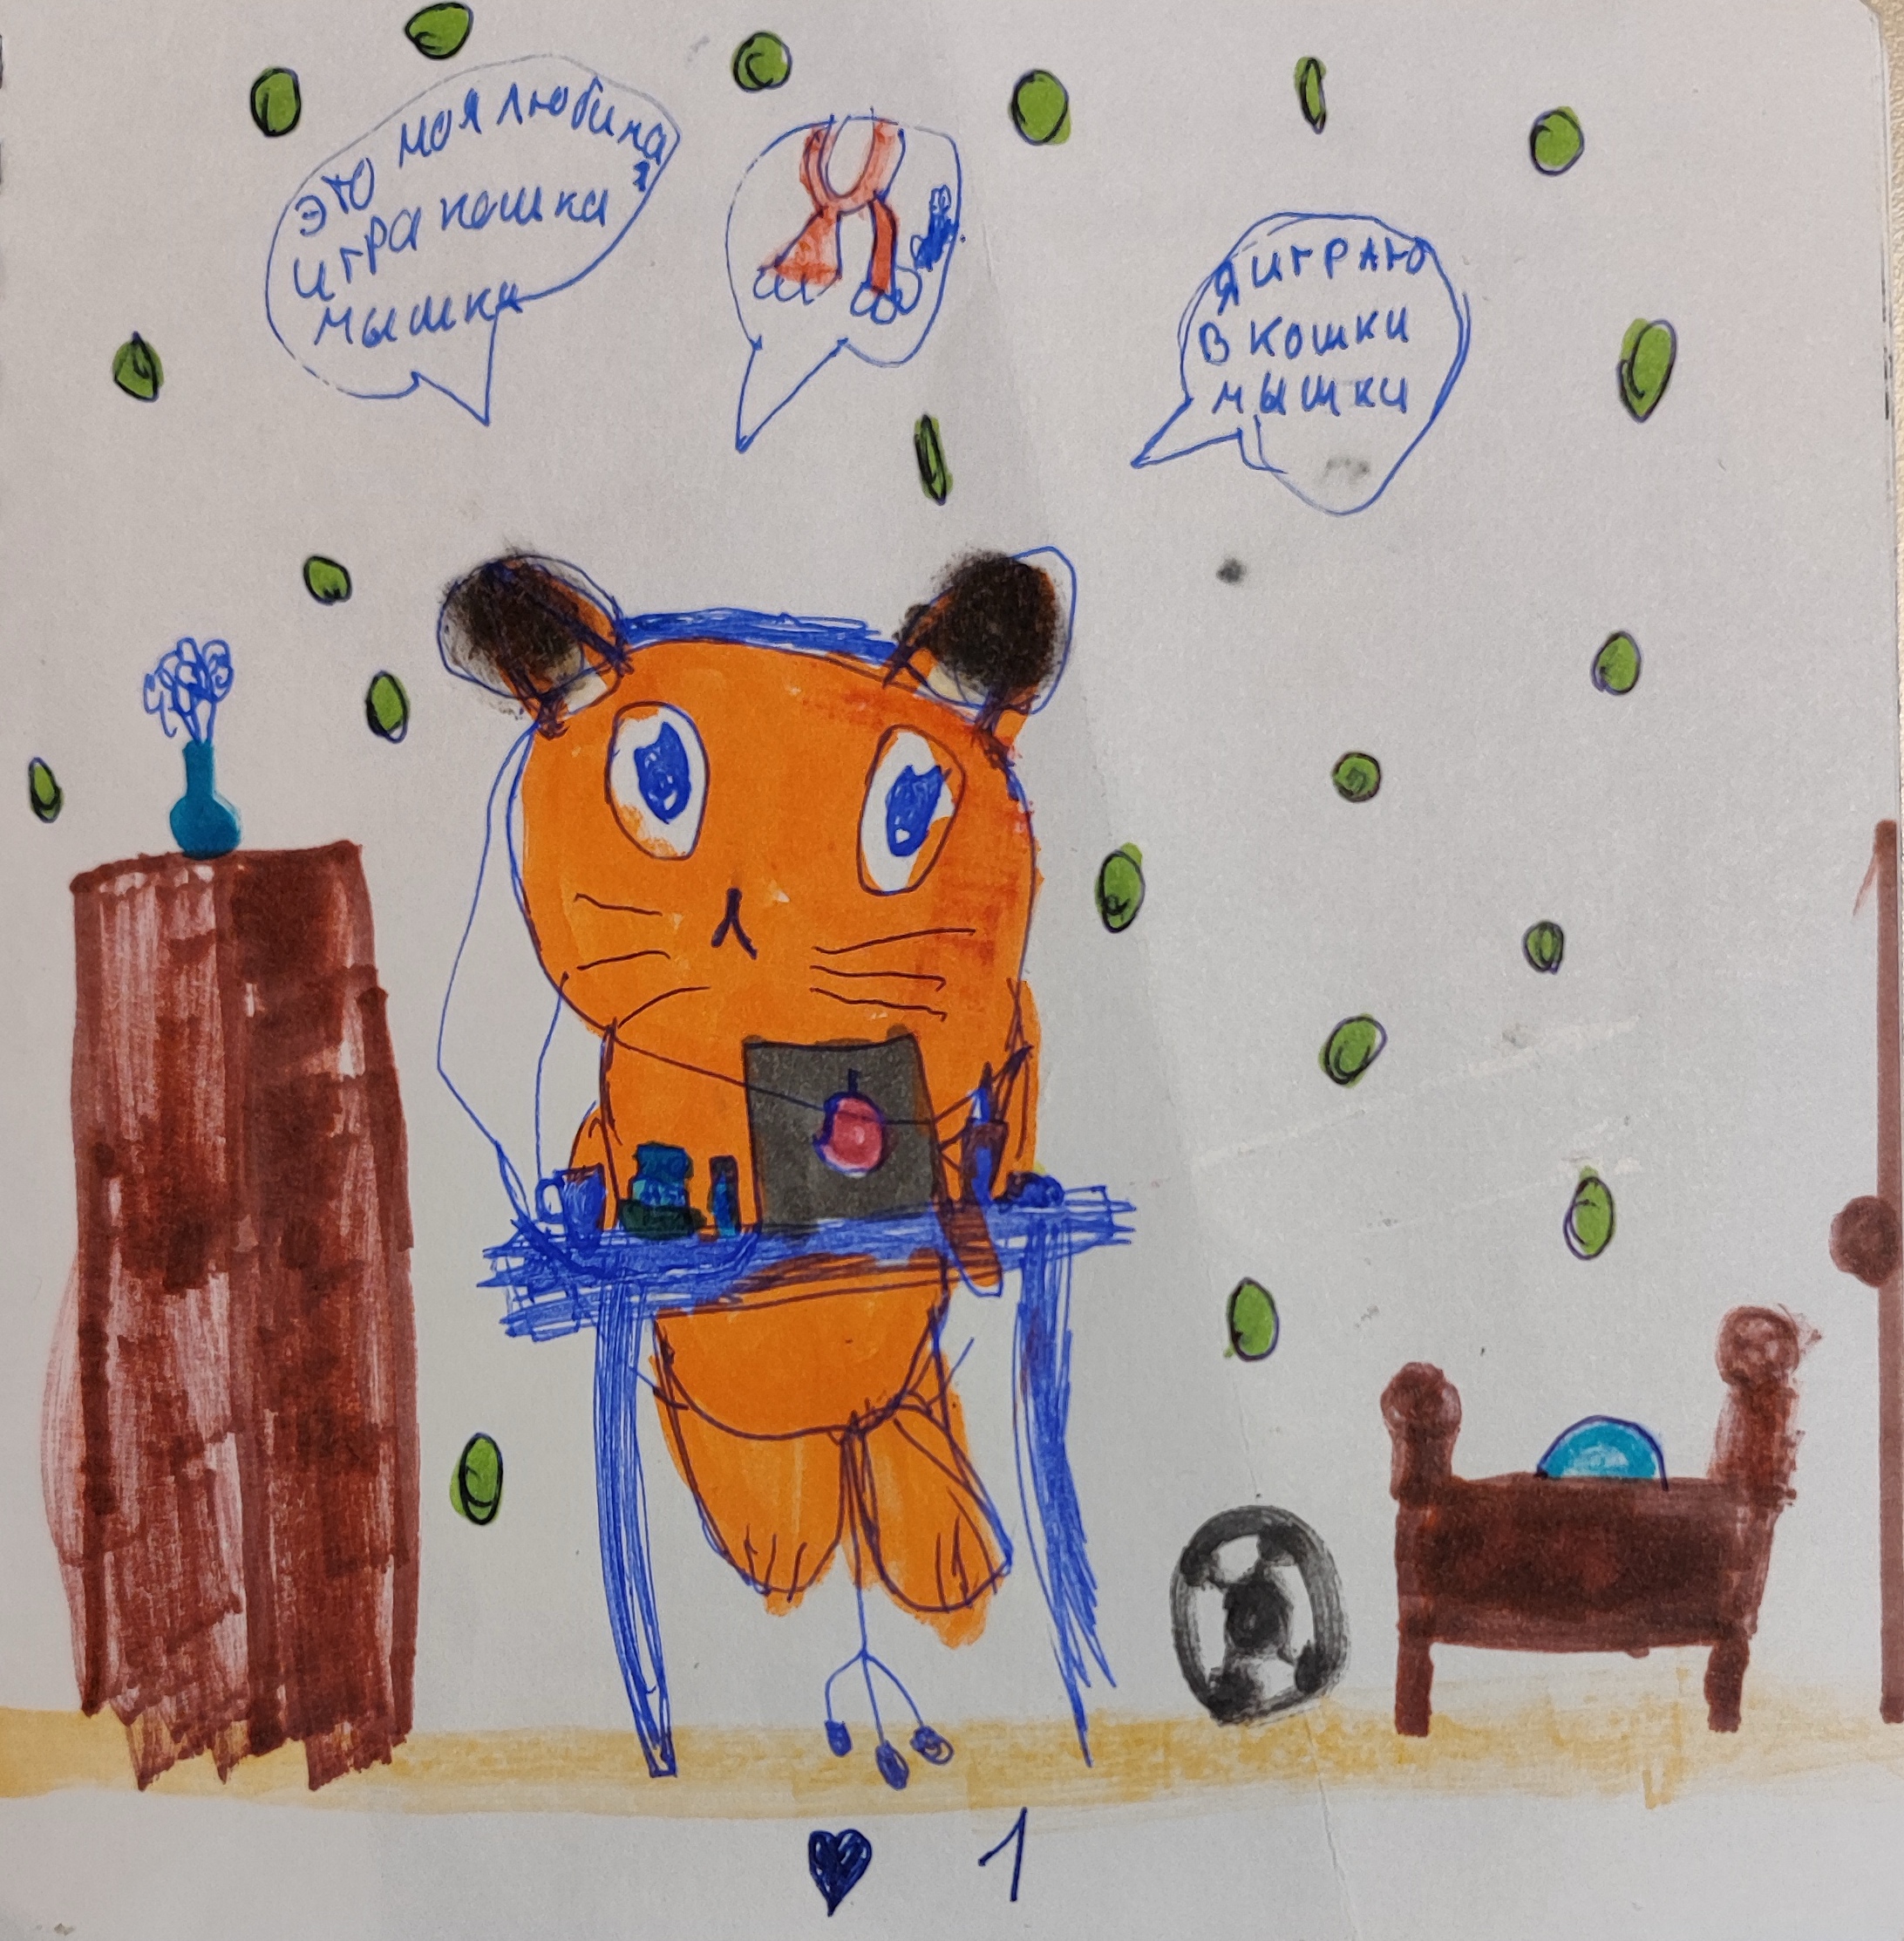 это моя любина
я
игра кошка
мышка
я играю
в кошки
мышки
1